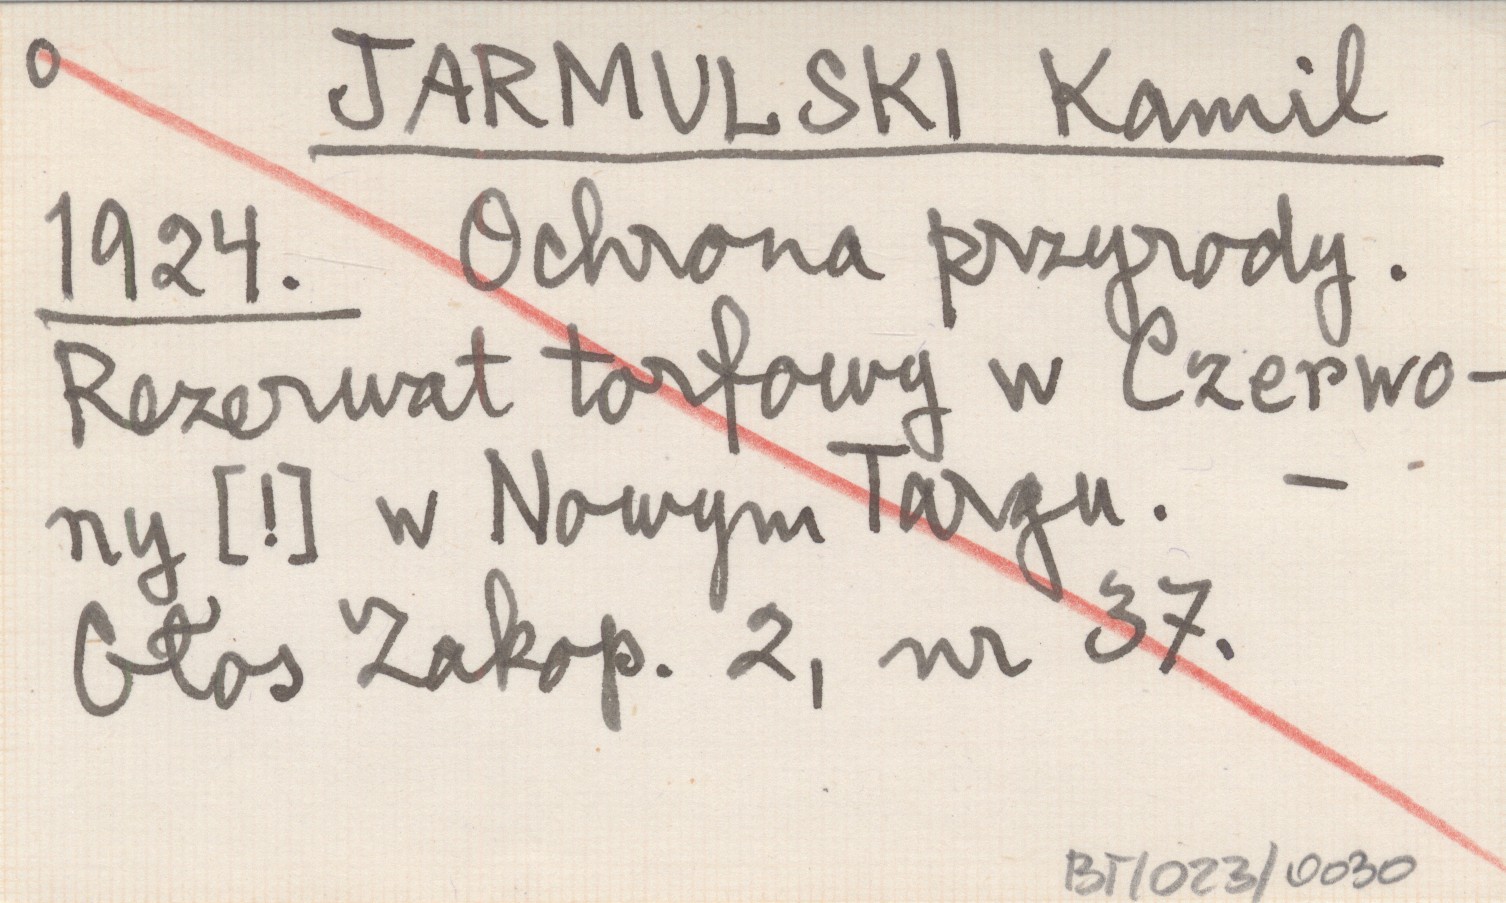 o JARMULSKI Kamil
1924. Ochrona przyrody.
Rezerwat torfowy w Czerwo-
ny [!] w Nowym Targu. –
Głos Zakop. 2, nr 37.
BT/023/0030